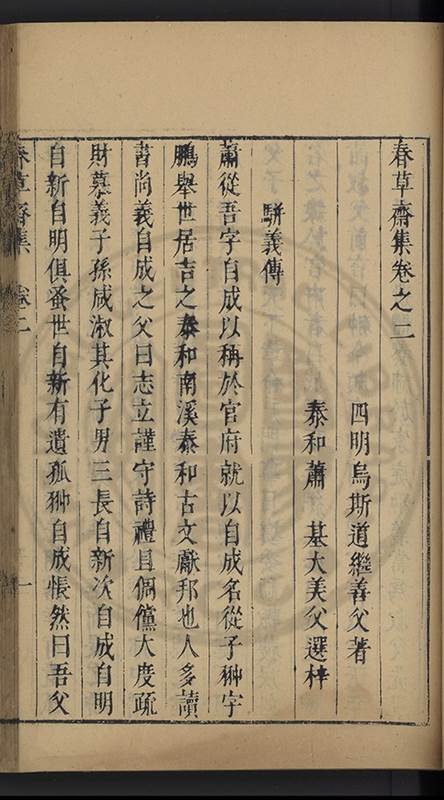 春草齋集卷之二
四明烏斯道繼善父著
泰和蕭　基大美父選梓
駢義傳
蕭從吾字自成以稱於官府就以自成名從子翀字
鵬舉世居吉之泰和南溪泰和古文獻邦也人多讀
書尚義自成之父曰志立謹守詩禮且倜儻大度疏
財慕義子孫咸淑其化子男三長自新次自成自明
自新自明俱蚤世自新有遺孤翀自成悵然曰吾父
春草齋集　卷二　一